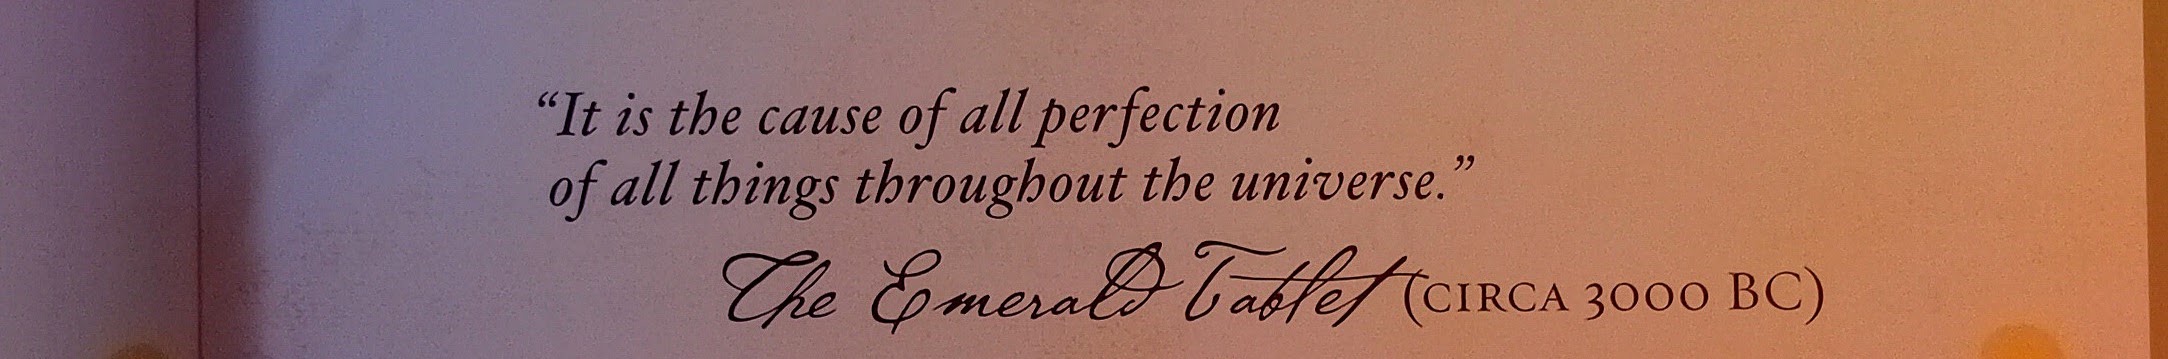 “It is the cause of all perfection
of all things throughout the universe.”
The Emerald Tablet (CIRCA 3000 BC)